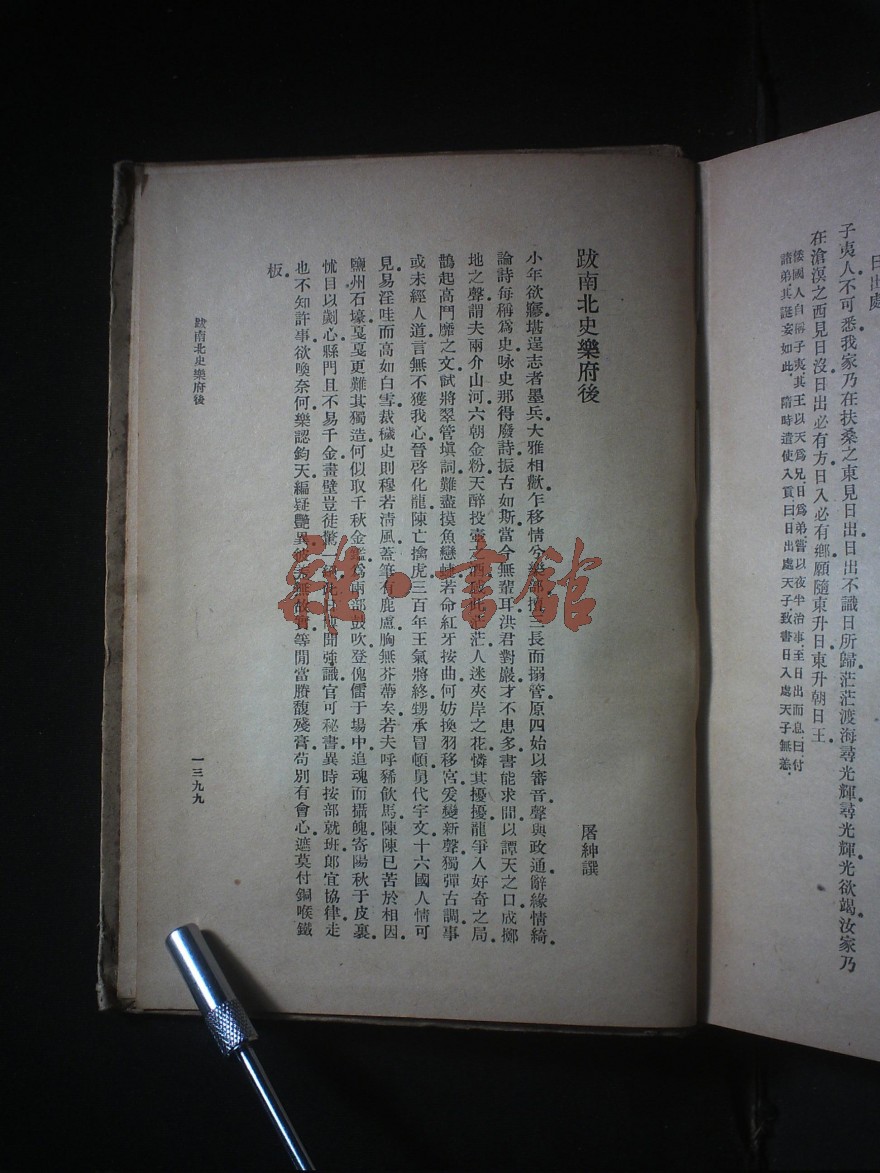 日出處
子夷人不可悉我家乃在扶桑之東見日出日出不識日所歸茫茫渡海尋光輝尋光輝光欲竭汝家乃
在滄溟之西見日沒日出必有方日入必有鄉願隨東升日東升朝日王
倭國人自稱子夷其王以天爲兄日爲弟嘗以夜半治事至日出而息曰付
諸弟其誕妄如此隋時遣使入貢曰日出處天子致書日入處天子無恙
跋南北史樂府後
屠紳譔
小年欲廖堪逞志者墨兵大雅相歡乍移情兮樂部擅三長而搦管原四始以審音聲與政通辭緣情綺
論詩每稱爲史咏史那得廢詩振古如斯當今無輩耳洪君對巖才不患多書能求閒以譚天之口成擲
地之聲謂夫兩介山河六朝金粉天醉投壺之酒彼此茫茫人迷夾岸之花憐其擾擾龍爭入好奇之局
鵲起高鬥靡之文試將翠管塡詞難盡摸魚戀若命紅牙按曲何妨換羽移宮爰變新聲獨彈古調事
或未經人道言無不獲我心晉啓化龍陳亡擒虎三百年王氣將終甥承冒頓舅代宇文十六國人情可
見易淫哇而高如白雪裁穢史則穆若淸風蓋筆有鹿盧胸無芥蔕矣若夫呼豨飮馬陳陳已苦於相因
鹽州石壕戛戛更難其獨造何似取千秋金鑑爲兩部鼓吹登傀儡于場中追魂而攝魄寄陽秋于皮裏
怵目以劌心縣門且不易千金畫壁豈徒驚一聞強識官可秘書異時按部就班郎宜協律走
也不知許事欲喚奈何樂認鈞天編疑艷異彼未無故實等閒當賸馥殘膏苟別有會心遮莫付銅喉鐵
板
跋南北史樂府後
一三九九
雜·書館